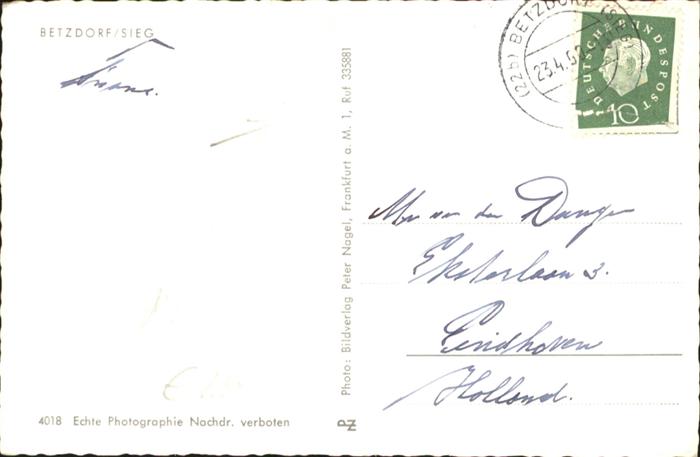 BETZDORF/SIEG
4018 Echte Photographie Nachdr. verboten
Photo: Bildverlag Peter Nagel, Frankfurt a. M. 1, Ruf 335881
(22b) BETZDORF (SIEG)
23.4.60
DEUTSCHE BUNDESPOST
10
Mr van den Dunge
Eksterlaan 3.
Eindhoven
Holland.